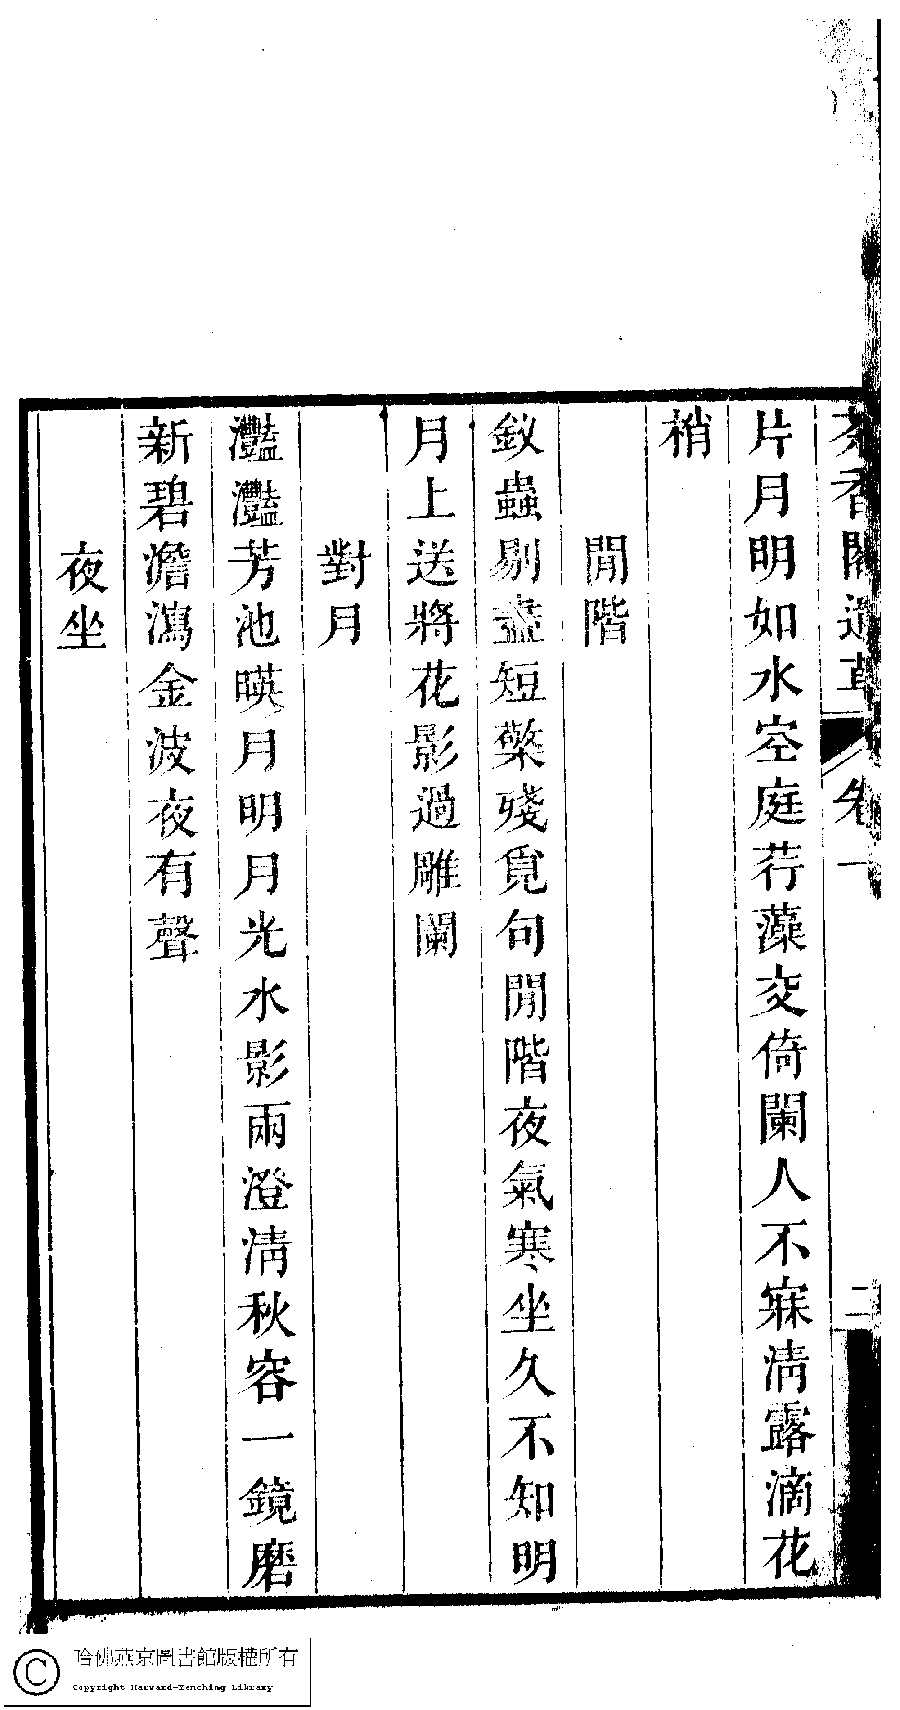 茶香閣遺草 卷一 二
片月明如水空庭荇藻交倚闌人不寐清露滴花
梢
閒階
釵蟲剔盡短檠殘覓句閒階夜氣寒坐久不知明
月上送將花影過雕闌
對月
灩灩芳池暎月明月光水影兩澄清秋容一鏡磨
新碧澹瀉金波夜有聲
夜坐
哈佛燕京圖書館版權所有
Copyright Harvard-Yenching Library